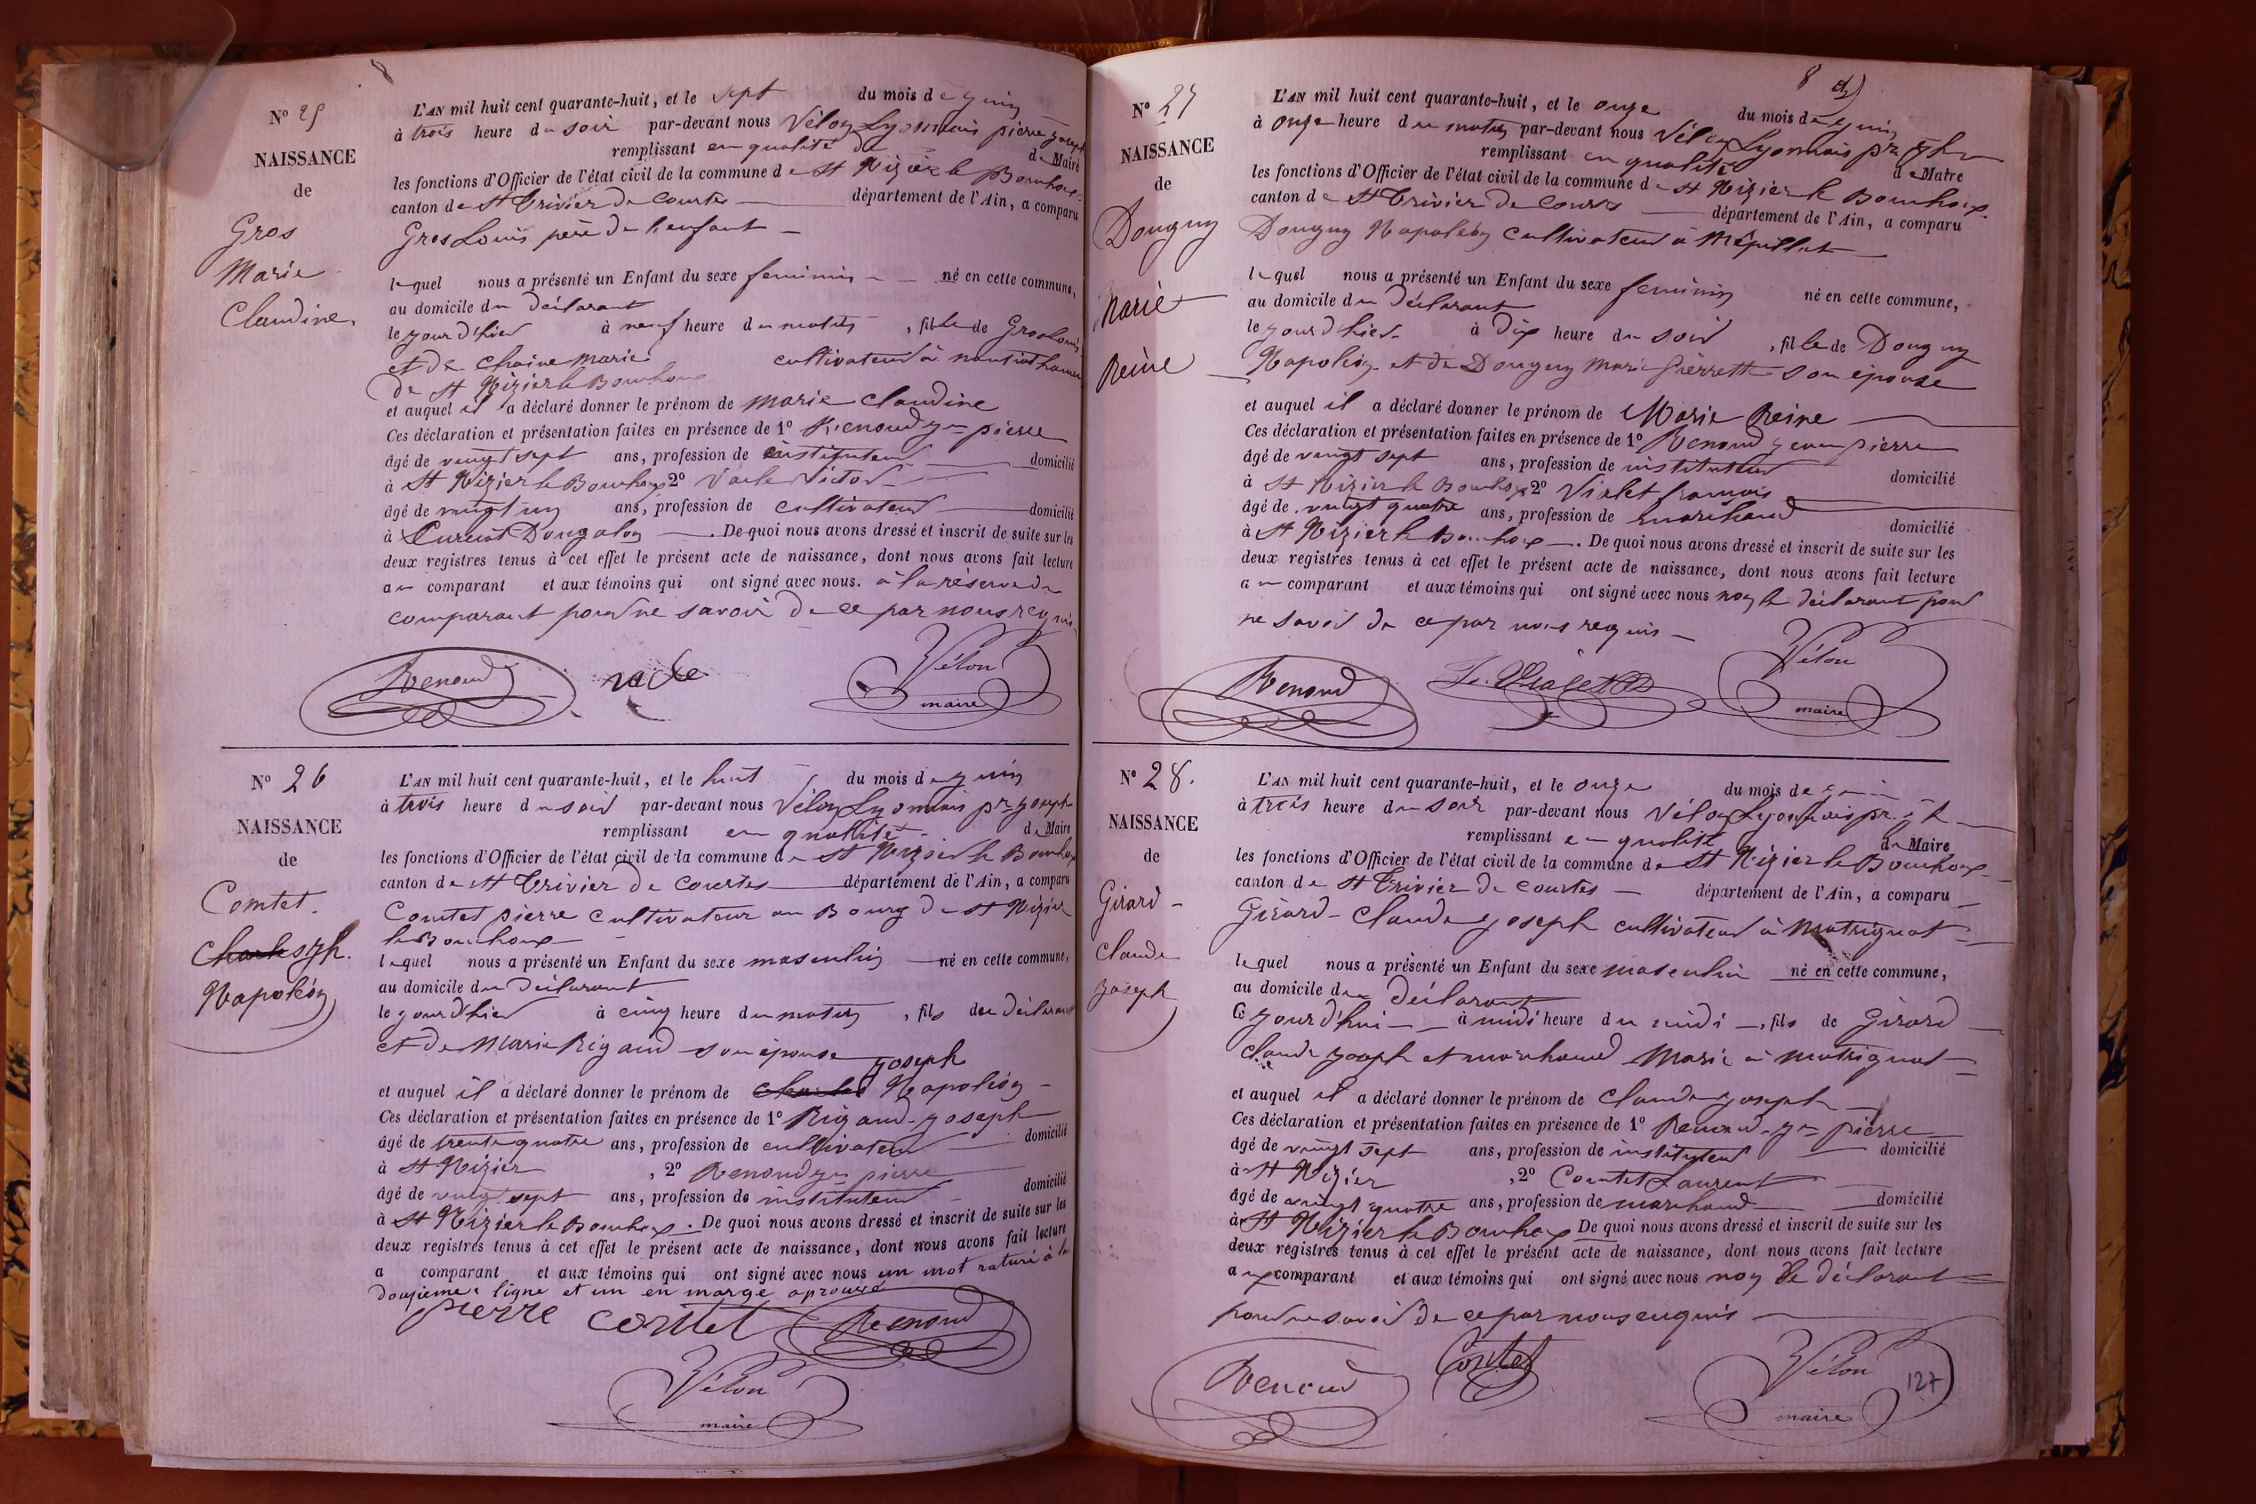 8
N° 25
NAISSANCE
de
Gros
Marie
Claudine.
L'AN mil huit cent quarante-huit, et le sept du mois de juin
à trois heure du soir par-devant nous Vélon Lyonnais pierre joseph
remplissant en qualité de de Maire
les fonctions d'Officier de l'état civil de la commune de St Nizier le Bouhoux
canton de St Trivier de Courtes département de l'Ain, a comparu
Gros Louis père de l'enfant
lequel nous a présenté un Enfant du sexe feminin né en cette commune,
au domicile du déclarant
le jour d'hier à neuf heure du matin, fille de Gros Louis
et de Chaine Marie cultivateur à
de St Nizier le Bouhoux
et auquel il a déclaré donner le prénom de Marie Claudine
Ces déclaration et présentation faites en présence de 1° Renoud jn pierre
âgé de vingt sept ans, profession de instituteur domicilié
à St Nizier le Bouhoux 2° Victor
âgé de vingt un ans, profession de cultivateur domicilié
à Curciat Dongalon. De quoi nous avons dressé et inscrit de suite sur les
deux registres tenus à cet effet le présent acte de naissance, dont nous avons fait lecture
au comparant et aux témoins qui ont signé avec nous. à la réserve du
comparant pour ne savoir de ce par nous requis
Renoud Vélon
maire
N° 26
NAISSANCE
de
Comtet.
Charles jph.
Napoléon
L'AN mil huit cent quarante-huit, et le huit du mois de juin
à trois heure du soir par-devant nous Vélon Lyonnais pre joseph
remplissant en qualité de Maire
les fonctions d'Officier de l'état civil de la commune de St Nizier le Bouhoux
canton de St Trivier de Courtes département de l'Ain, a comparu
Comtet pierre cultivateur au Bourg de St Nizier
le Bouhoux
lequel nous a présenté un Enfant du sexe masculin né en cette commune,
au domicile du déclarant
le jour d'hier à cinq heure du matin, fils du déclarant
et de Marie Rigaud son épouse
joseph
et auquel il a déclaré donner le prénom de Charles Napoléon
Ces déclaration et présentation faites en présence de 1° Rigaud joseph
âgé de trente quatre ans, profession de cultivateur domicilié
à St Nizier, 2° Renoud jn pierre
âgé de vingt sept ans, profession de instituteur domicilié
à St Nizier le Bouhoux. De quoi nous avons dressé et inscrit de suite sur les
deux registres tenus à cet effet le présent acte de naissance, dont nous avons fait lecture
a comparant et aux témoins qui ont signé avec nous un mot raturé à la
douzieme ligne et un en marge aprouvé
pierre comtet Renoud
Vélon
maire
8
N° 27
NAISSANCE
de
Douguy
Marie
Reine
L'AN mil huit cent quarante-huit, et le onze du mois de juin
à onze heure du matin par-devant nous Vélon Lyonnais pre jph
remplissant en qualité de Maire
les fonctions d'Officier de l'état civil de la commune de St Nizier le Bouhoux
canton de St Trivier de Courtes département de l'Ain, a comparu
Douguy Napoléon cultivateur à Mépillat
lequel nous a présenté un Enfant du sexe feminin né en cette commune,
au domicile du déclarant
le jour d'hier à dix heure du soir, fille de Douguy
Napoléon et de Douguy Marie pierrette son épouse
et auquel il a déclaré donner le prénom de Marie Reine
Ces déclaration et présentation faites en présence de 1° Renoud jean pierre
âgé de vingt sept ans, profession de instituteur domicilié
à St Nizier le Bouhoux 2° Violet francois
âgé de vingt quatre ans, profession de marchand domicilié
à St Nizier le Bouhoux. De quoi nous avons dressé et inscrit de suite sur les
deux registres tenus à cet effet le présent acte de naissance, dont nous avons fait lecture
au comparant et aux témoins qui ont signé avec nous non le déclarant pour
ne savoir de ce par nous requis
Renoud Vélon
maire
N° 28.
NAISSANCE
de
Girard
Claude
Joseph
L'AN mil huit cent quarante-huit, et le onze du mois de juin
à trois heure du soir par-devant nous Vélon Lyonnais pre jph
remplissant en qualité de Maire
les fonctions d'Officier de l'état civil de la commune de St Nizier le Bouhoux
canton de St Trivier de Courtes département de l'Ain, a comparu
Girard Claude joseph cultivateur à Matrignat
lequel nous a présenté un Enfant du sexe masculin né en cette commune,
au domicile du déclarant
Ce jour d'hui à midi heure du midi, fils de Girard
Claude joseph et marchand Marie à Matrignat
et auquel il a déclaré donner le prénom de Claude joseph
Ces déclaration et présentation faites en présence de 1° Renoud jn pierre
âgé de vingt sept ans, profession de instituteur domicilié
à St Nizier, 2° Comtet Laurent
âgé de vingt quatre ans, profession de marchand domicilié
à St Nizier le Bouhoux De quoi nous avons dressé et inscrit de suite sur les
deux registres tenus à cet effet le présent acte de naissance, dont nous avons fait lecture
au comparant et aux témoins qui ont signé avec nous non le déclarant
pour ne savoir de ce par nous enquis
Renoud Comtet Vélon
maire
127